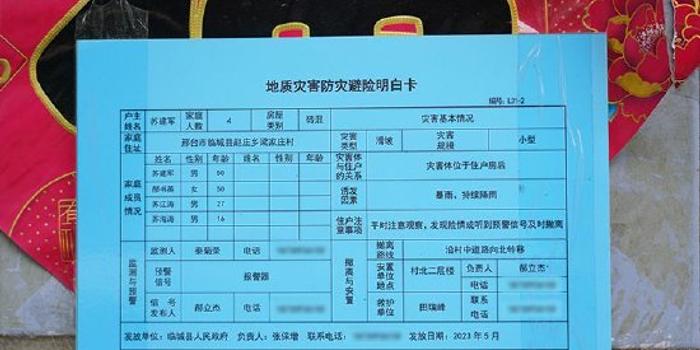 地质灾害防灾避险明白卡
编号: L21-2
户主姓名 苏建军 家庭人数 4 房屋类别 砖混 灾害基本情况
家庭住址 邢台市临城县赵庄乡梁家庄村 灾害类型 滑坡 灾害规模 小型
家庭成员情况 姓名 性别 年龄 姓名 性别 年龄 灾害体与住户的关系 灾害体位于住户房后
苏建军 男 50
女 50 诱发因素 暴雨，持续降雨
苏江涛 男 27
苏海涛 男 16 住户注意事项 平时注意观察，发现险情或听到预警信号及时撤离
监测与预警 监测人 秦菊荣 电话 撤离与安置 撤离路线 沿村中道路向北转移
预警信号 报警器 安置单位地点 村北二层楼 负责人 郝立杰
电话
信号发布人 郝立杰 电话 救护单位 田瑞峰 联系电话
发放单位：临城县人民政府 负责人：张保增 联系电话： 发放日期：2023年5月